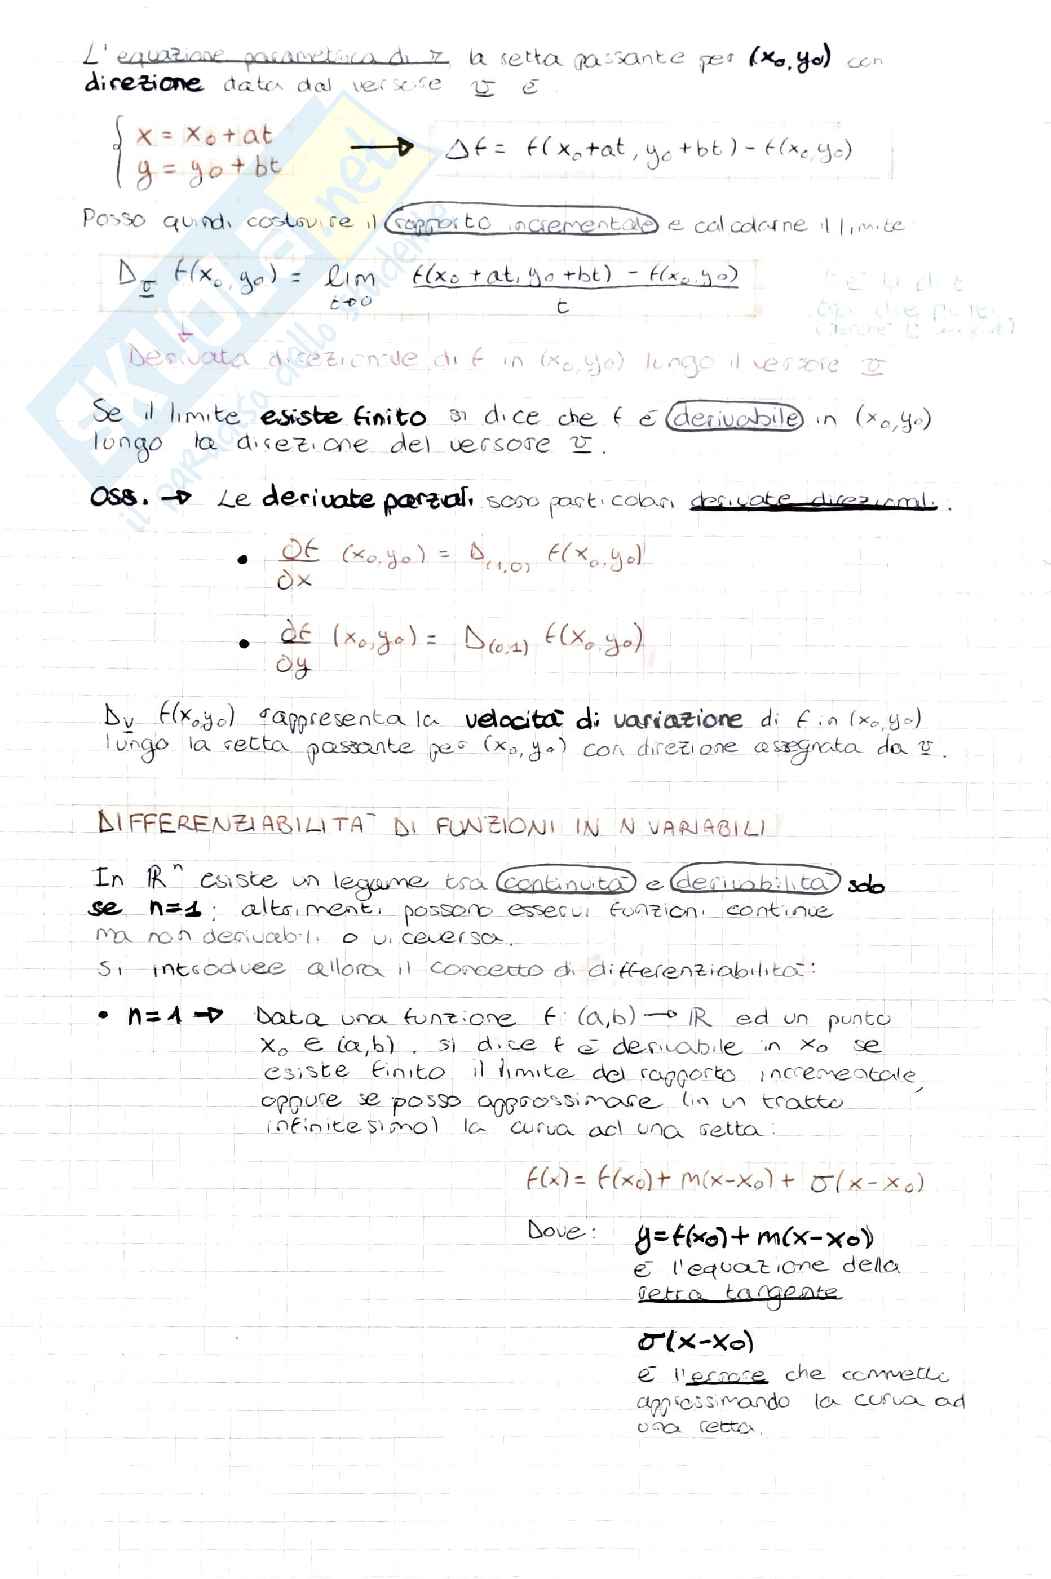 L'equazione parametrica di r, la retta passante per (x₀,y₀) con
direzione data dal versore v è
{ x = x₀ + at
y = y₀ + bt
→ Δf = f(x₀+at, y₀+bt) - f(x₀,y₀)
Posso quindi costruire il rapporto incrementale e calcolarne il limite
D_v f(x₀,y₀) = lim t→0 f(x₀+at, y₀+bt) - f(x₀,y₀) / t
Derivata direzionale di f in (x₀,y₀) lungo il versore v
Se il limite esiste finito si dice che f è derivabile in (x₀,y₀)
lungo la direzione del versore v.
OSS. → Le derivate parziali sono particolari derivate direzionali.
• ∂f/∂x (x₀,y₀) = D(1,0) f(x₀,y₀)
• ∂f/∂y (x₀,y₀) = D(0,1) f(x₀,y₀)
D_v f(x₀,y₀) rappresenta la velocità di variazione di f in (x₀,y₀)
lungo la retta passante per (x₀,y₀) con direzione assegnata da v.
DIFFERENZIABILITÀ DI FUNZIONI IN N VARIABILI
In ℝⁿ esiste un legame tra continuità e derivabilità solo
se n=1; altrimenti possono esservi funzioni continue
ma non derivabili o viceversa.
Si introduce allora il concetto di differenziabilità:
• n=1 → Data una funzione f: (a,b) → ℝ ed un punto
x₀ ∈ (a,b), si dice f è derivabile in x₀ se
esiste finito il limite del rapporto incrementale,
oppure se posso approssimare (in un tratto
infinitesimo) la curva ad una retta:
f(x) = f(x₀) + m(x-x₀) + σ(x-x₀)
Dove: y=f(x₀)+m(x-x₀)
è l'equazione della
retta tangente
σ(x-x₀)
è l'errore che commetti
approssimando la curva ad
una retta.
SKUOLA.net
il paradiso dello studente